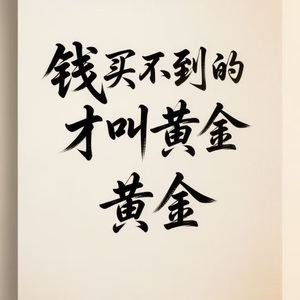 钱买不到的
才叫黄金
黄金